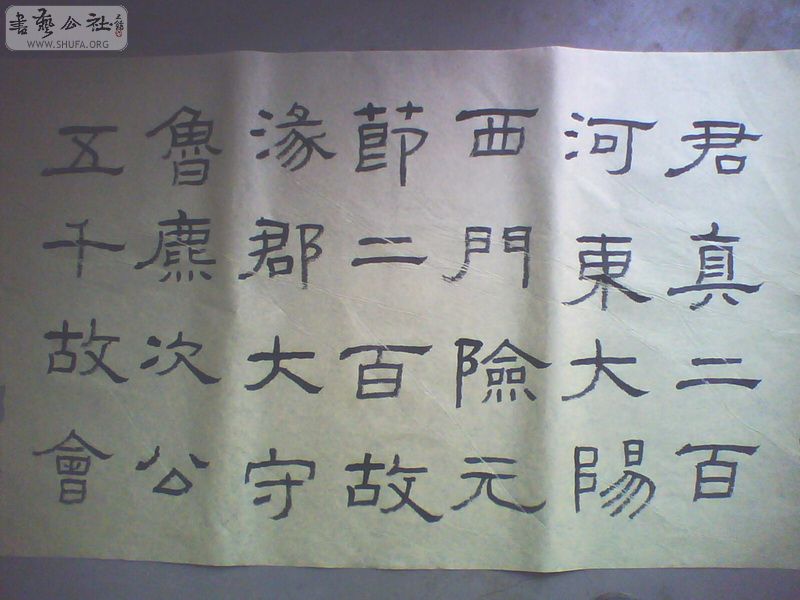 君真二百
河東大陽
西門險元
節二百故
涿郡大守
魯麃次公
五千故會
書藝公社
WWW.SHUFA.ORG